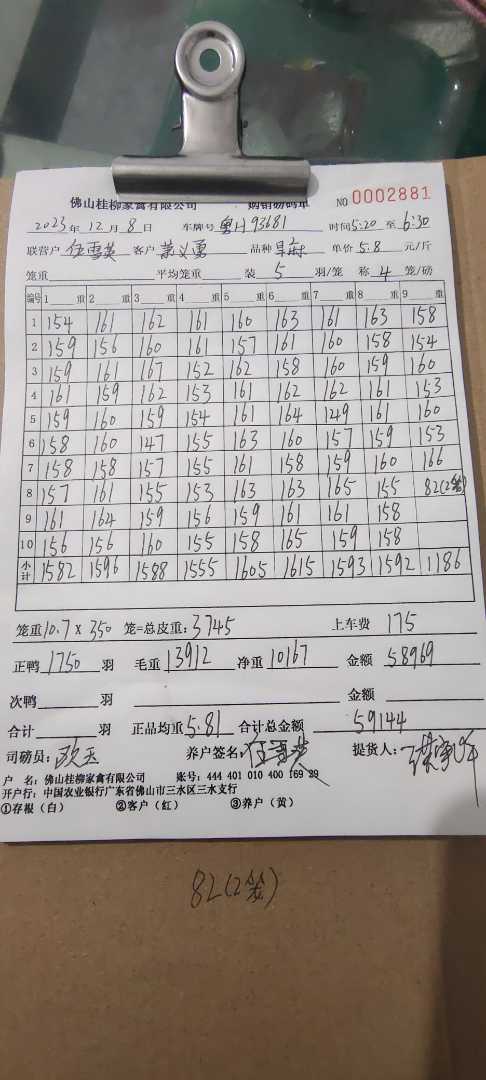 佛山桂柳家禽有限公司 购销磅码单 NO 0002881
2023年12月8日 车牌号 粤H93681 时间5:20至6:30
联营户 任雪英 客户 品种 单价5.8元/斤
笼重 平均笼重 装5羽/笼 称4笼/磅
编号 1 重 2 重 3 重 4 重 5 重 6 重 7 重 8 重 9 重
1 154 161 162 161 160 163 161 163 158
2 159 156 160 161 157 161 160 158 154
3 159 161 167 152 162 158 160 159 160
4 161 159 162 153 161 162 162 161 153
5 159 160 159 154 161 164 149 161 160
6 158 160 147 155 163 160 157 159 153
7 158 158 157 155 161 158 159 160 166
8 157 161 155 153 163 163 165 155 82(2笼)
9 161 164 159 156 159 161 161 158
10 156 156 160 155 158 165 159 158
小计 1582 1596 1588 1555 1605 1615 1593 1592 1186
笼重10.7×350笼=总皮重:3745 上车费 175
正鸭1750羽 毛重13912 净重10167 金额58969
次鸭 羽 金额
合计 羽 正品均重5.81 合计总金额 59144
司磅员: 养户签名:任雪英 提货人:
户 名:佛山桂柳家禽有限公司 账号:444 401 010 400 169 29
开户行:中国农业银行广东省佛山市三水区三水支行
①存根(白) ②客户(红) ③养户(黄)
82(2笼)